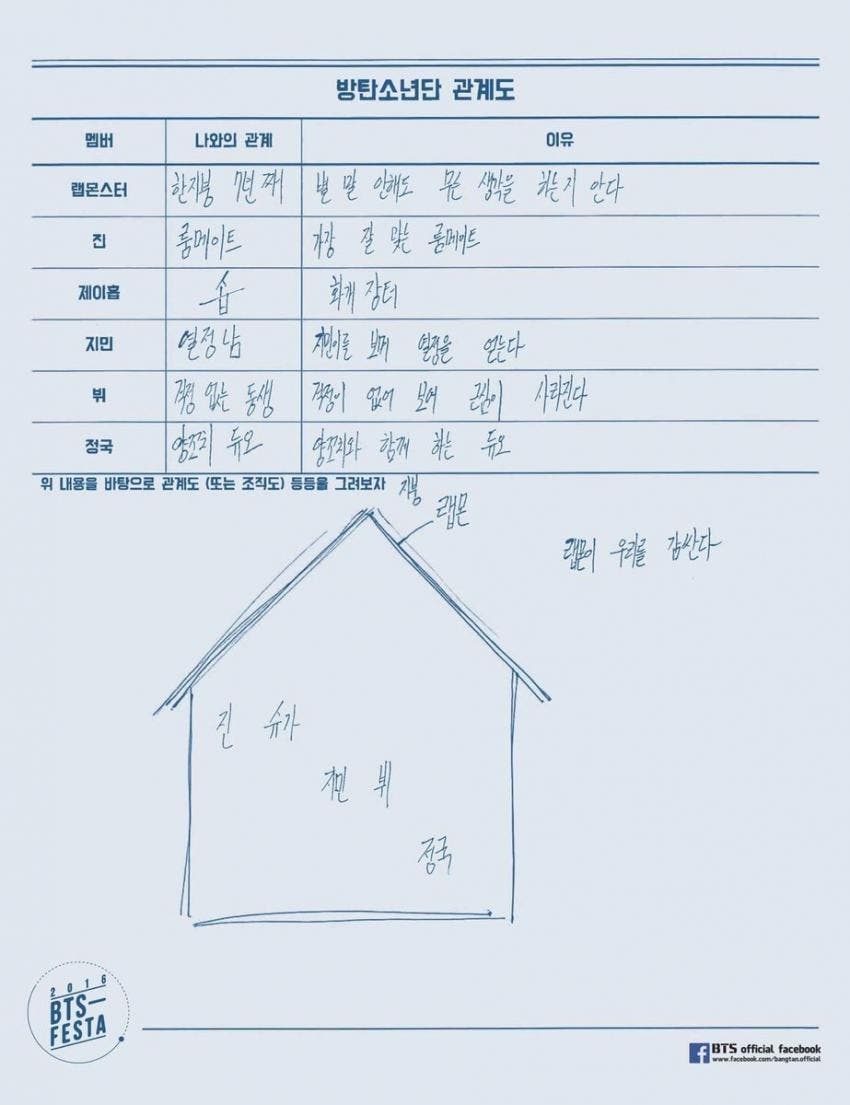 방탄소년단 관계도
멤버 나와의 관계 이유
랩몬스터 한지붕 7년 째 별 말 안해도 무슨 생각을 하는지 안다
진 룸메이트 가장 잘 맞는 룸메이트
제이홉 솝 화개 장터
지민 열정남 지민이를 보며 열정을 얻는다
뷔 걱정 없는 동생 걱정이 없어 보여 근심이 사라진다
정국 양꼬치 듀오 양꼬치와 함께 하는 듀오
위 내용을 바탕으로 관계도 (또는 조직도) 등등을 그려보자
지붕
랩몬
랩몬이 우리를 감싼다
진 슈가
지민 뷔
정국
2016
BTS—
FESTA
BTS official facebook
www.facebook.com/bangtan.official